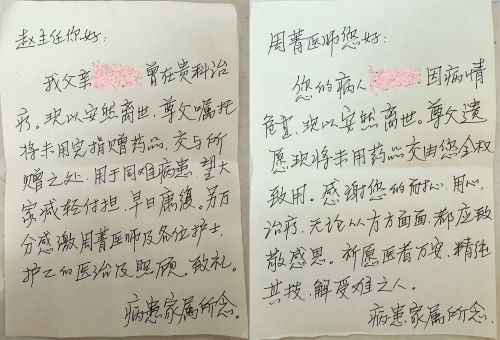 赵主任你好:
我父亲 曾在贵科治
疗。现以安然离世,尊父嘱托
将未用完捐赠药品,交与所
赠之处,用于同难病患,望大
家减轻付担,早日康復。另万
分感激周菁医师及各位护士,
护工们医治及照顾。致礼。
病患家属所念。
周菁医师您好:
您的病人 因病情
危重,现以安然离世。尊父遗
愿现将未用药品交由您全权
致用。感谢您的耐心,用心,
治疗,无论从方方面面,都应致
敬感恩。祈愿医者万安,精纯
其技,解受难之人。
病患家属所念.